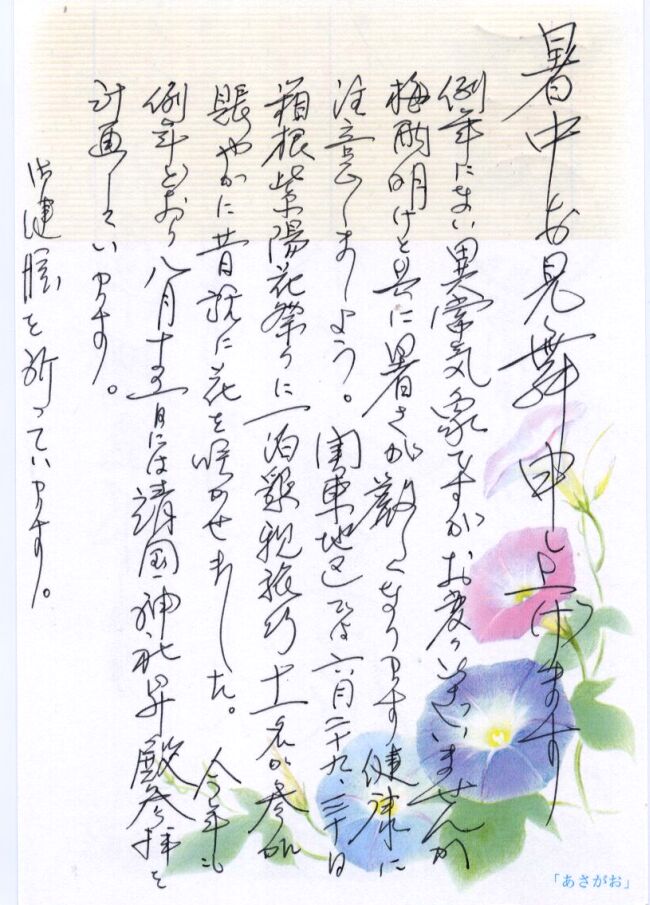 暑中お見舞申し上げます
例年にない異常気象ですがお変りございませんか
梅雨明けと共に暑さが厳しくなります 健康に
注意しましょう。関東地区では六月二十九、三十日
箱根紫陽花祭りに一泊懇親旅行 十一名が参加
賑やかに昔話に花を咲かせました。今年も
例年どおり八月十五日には靖国神社昇殿参拝を
計画しています。
御健勝を祈っています。
「あさがお」